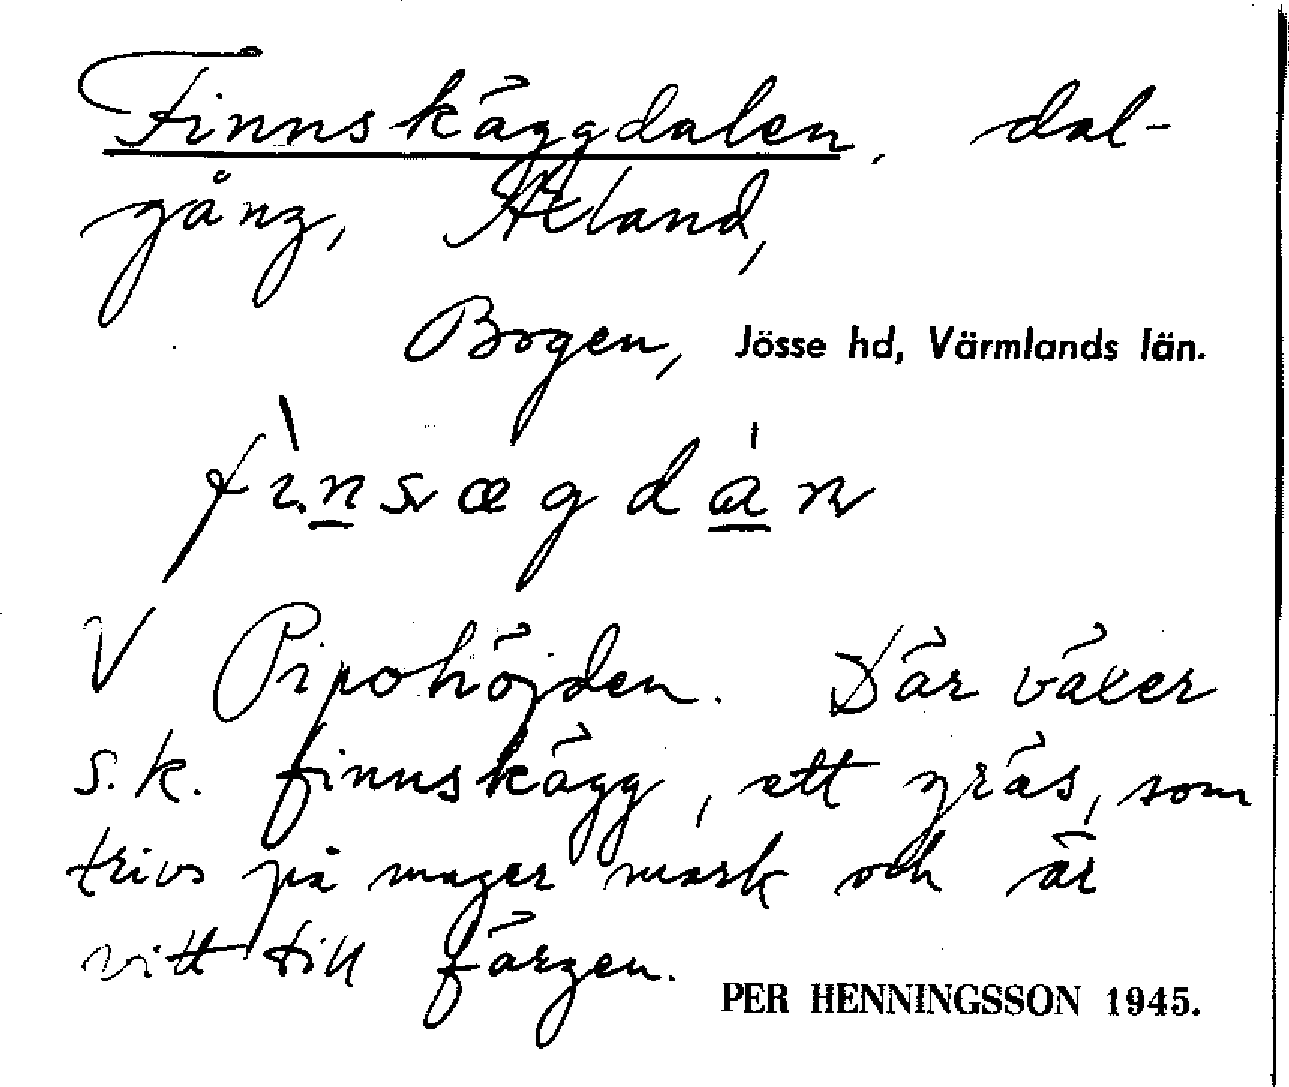 Finnskäggdalen, dal-
gång, Åland,
Bogen, Jösse hd, Värmlands län.
V Pipohöjden. Där växer
s.k. finnskägg, ett gräs, som
trivs på mager mark och är
vitt till färgen.
PER HENNINGSSON 1945.